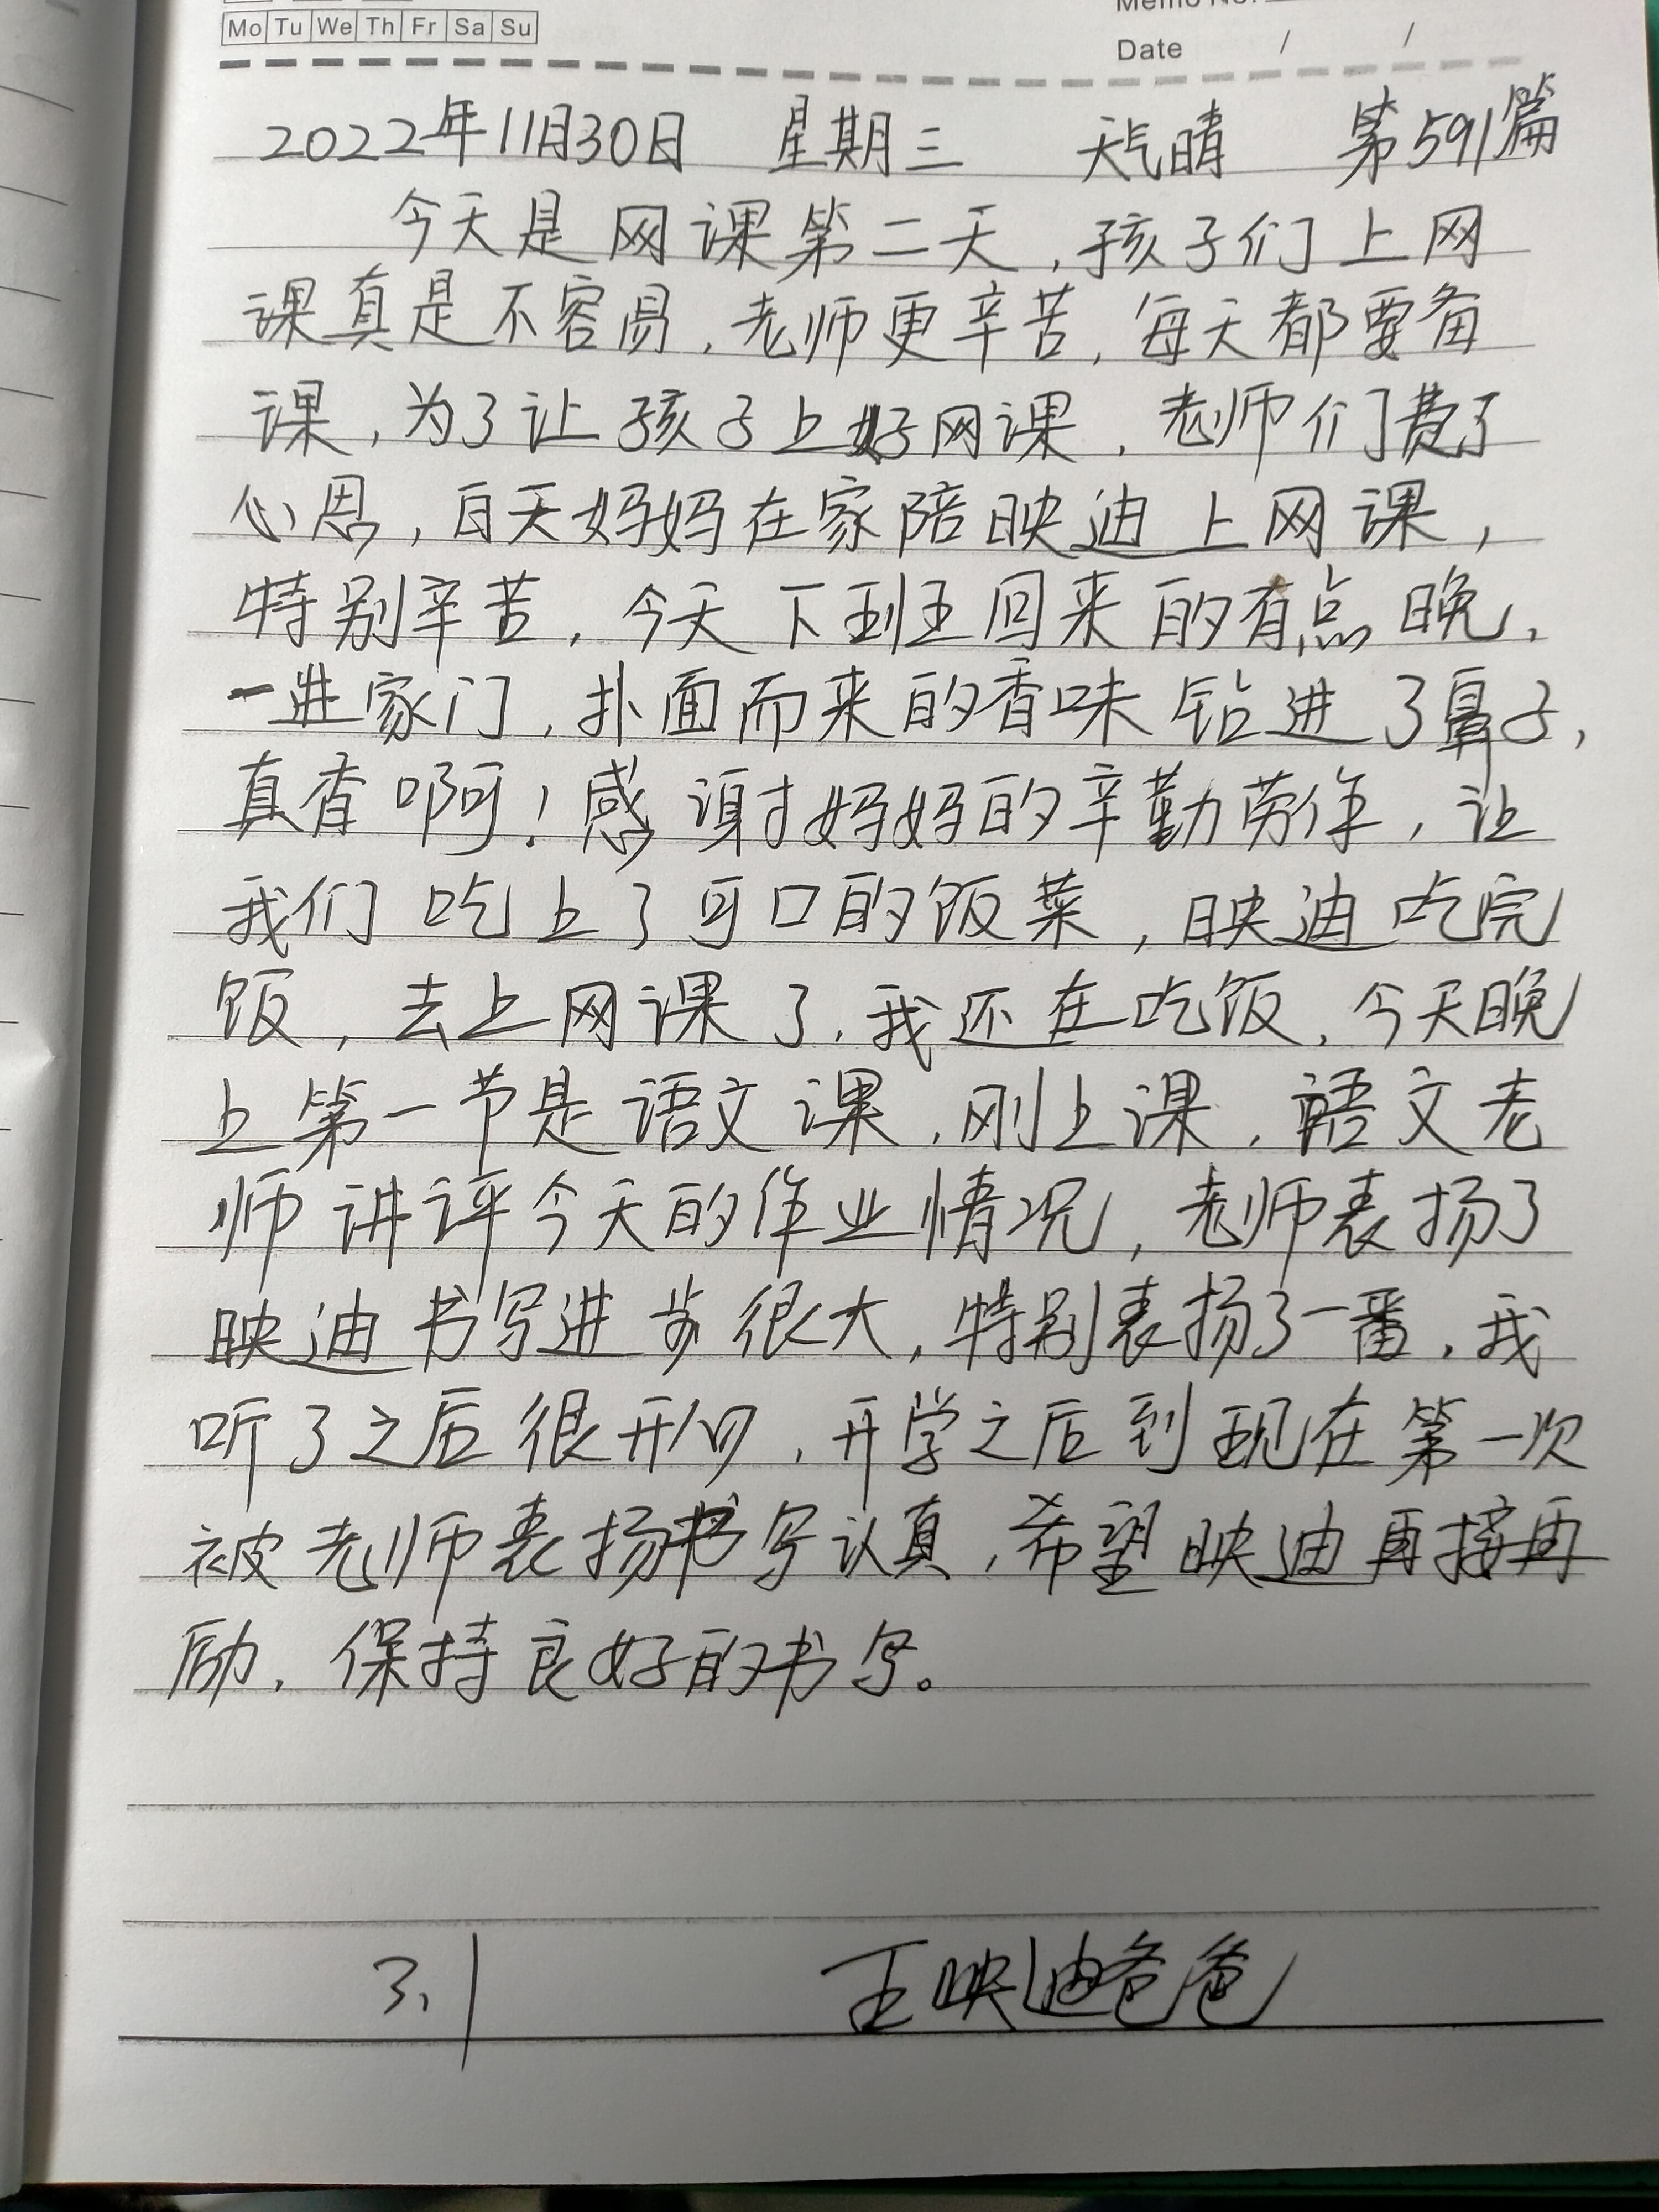 Mo Tu We Th Fr Sa Su
Memo No.
Date / /
2022年11月30日 星期三 天气晴 第591篇
今天是网课第二天,孩子们上网
课真是不容易,老师更辛苦,每天都要备
课,为了让孩子上好网课,老师们费了
心思,白天妈妈在家陪映迪上网课,
特别辛苦,今天下班回来的有点晚,
一进家门,扑面而来的香味钻进了鼻子,
真香啊!感谢妈妈的辛勤劳作,让
我们吃上了可口的饭菜,映迪吃完
饭,去上网课了,我还在吃饭,今天晚
上第一节是语文课,刚上课,语文老
师讲评今天的作业情况,老师表扬了
映迪书写进步很大,特别表扬了一番,我
听了之后很开心,开学之后到现在第一次
被老师表扬书写认真,希望映迪再接再
励,保持良好的书写。
3.1 王映迪爸爸